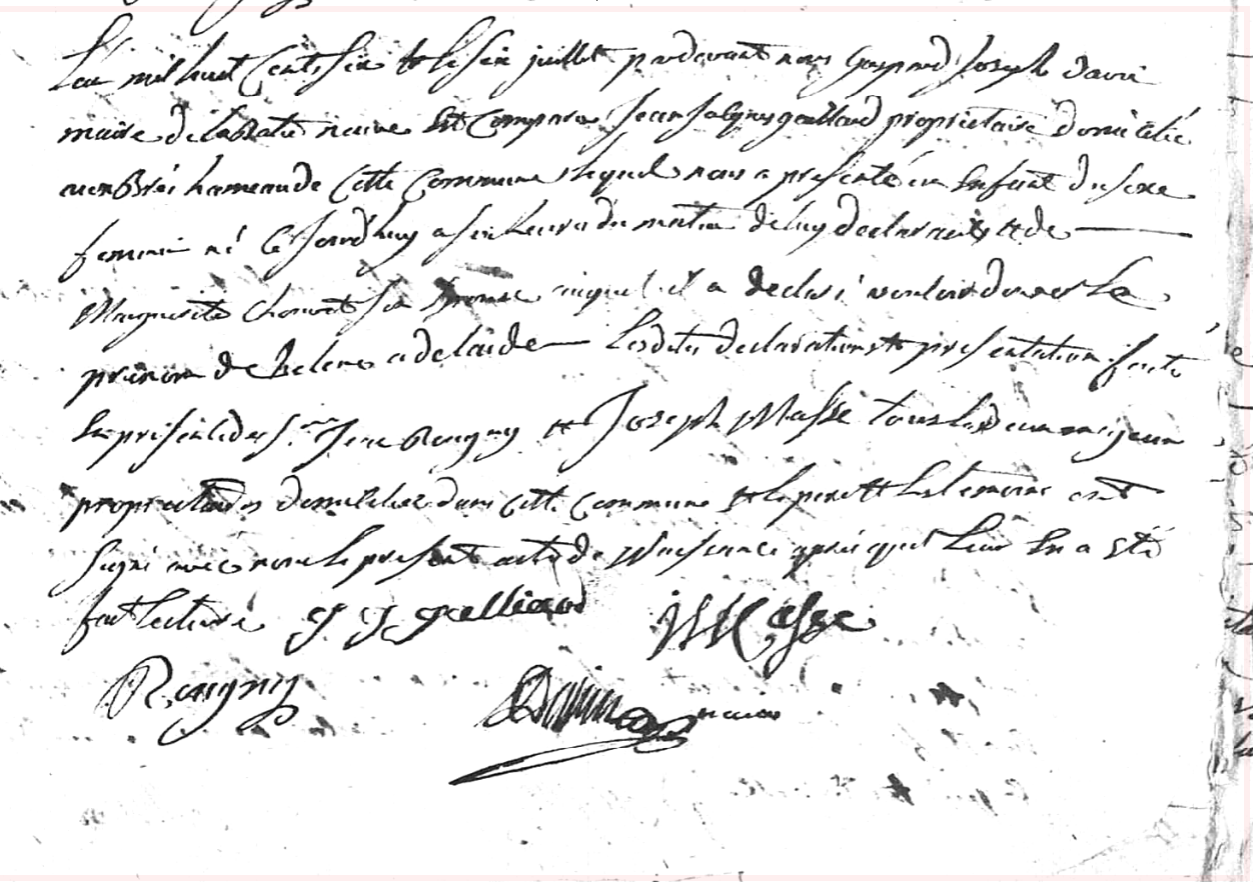 L'an mil huit cent six et le six juillet pardevant nous Gaspard Joseph Davin
maire de la Batie neuve est comparu Jean Jacques gailland propriétaire domicilié
hameau de cette commune lequel nous a presenté un enfant du sexe
feminin né ce jourd'huy a six heures du matin de luy declarant et de
Marguerite son epouse auquel il a declaré vouloir donner le
prenom de helene adelaide Lesdites declaration et presentation faite
en presence des Srs Rougny et Joseph Masse tous les deux majeurs
propriétaires domiciliés dans cette commune et le pere et les temoins ont
signé avec nous le present acte de naissance après que leur en a été
fait lecture J J galliand JMasse
Rougny Davin maire